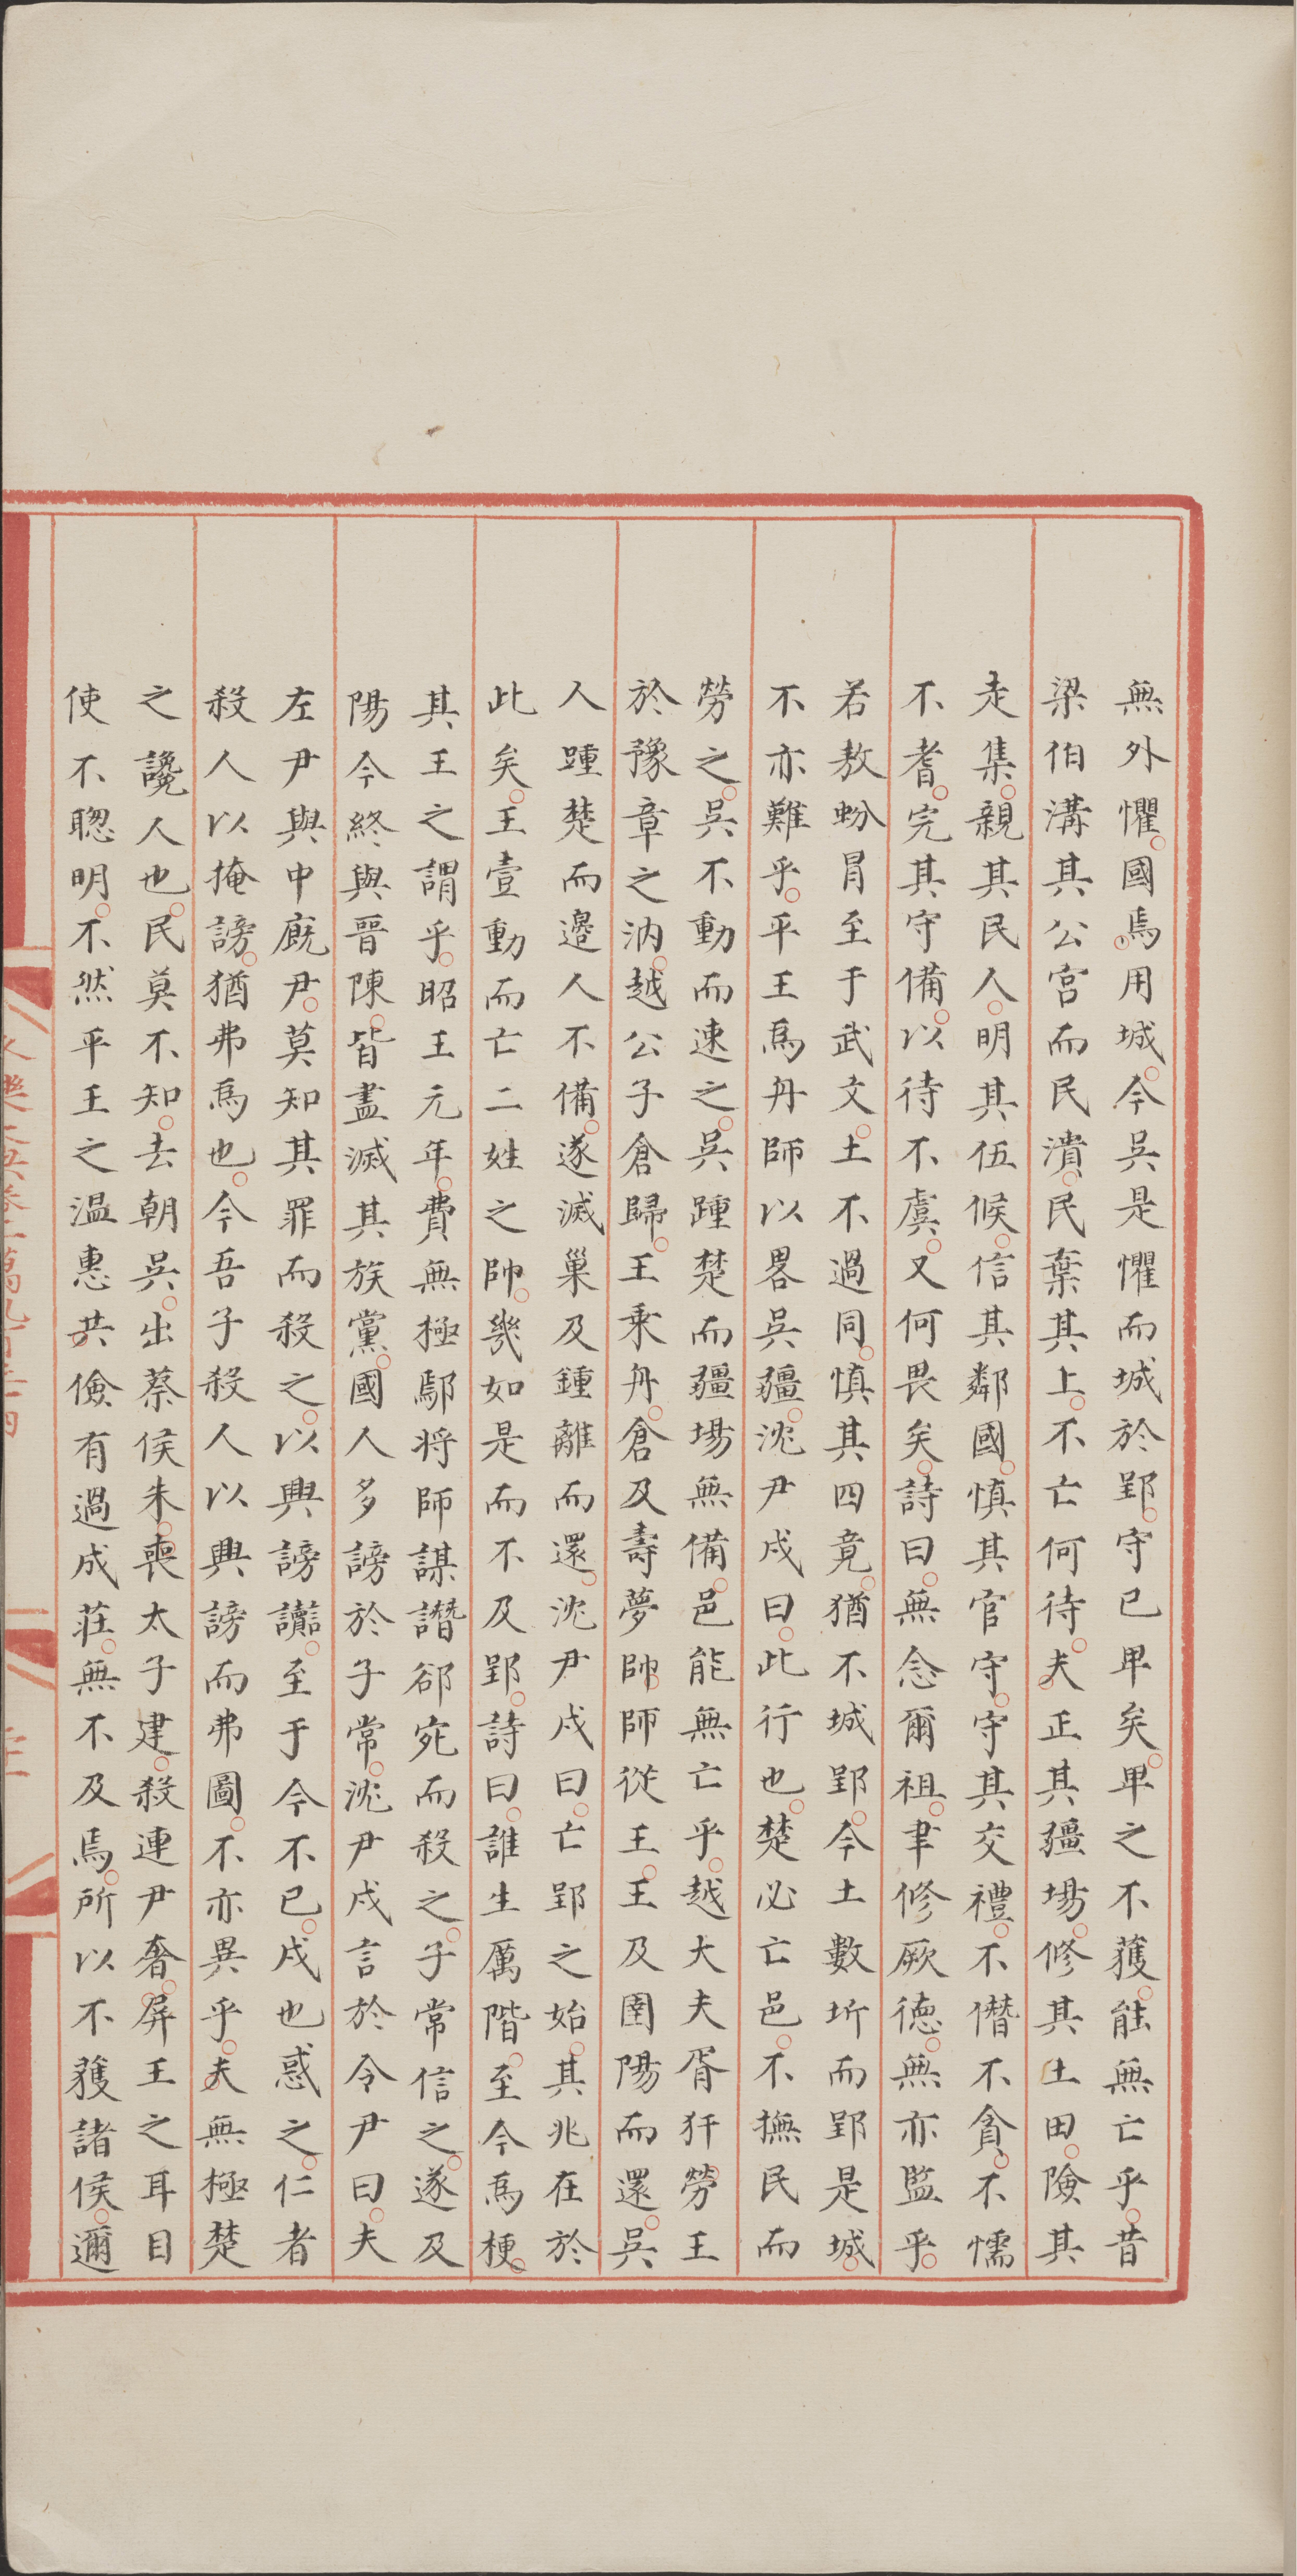 無外懼國焉用城今吳是懼而城於郢守已卑矣卑之不獲能無亡乎昔
梁伯溝其公宮而民潰民棄其上不亡何待夫正其疆埸修其土田險其
走集親其民人明其伍候信其鄰國慎其官守守其交禮不僭不貪不懦
不耆完其守備以待不虞又何畏矣詩曰無念爾祖聿修厥德無亦監乎
若敖蚡冒至于武文土不過同慎其四竟猶不城郢今土數圻而郢是城
不亦難乎平王為舟師以畧吳疆沈尹戌曰此行也楚必亡邑不撫民而
勞之吳不動而速之吳踵楚而疆埸無備邑能無亡乎越大夫胥犴勞王
於豫章之汭越公子倉歸王乘舟倉及壽夢帥師從王王及圉陽而還吳
人踵楚而邊人不備遂滅巢及鍾離而還沈尹戌曰亡郢之始其兆在於
此矣王壹動而亡二姓之帥幾如是而不及郢詩曰誰生厲階至今為梗
其王之謂乎昭王元年費無極鄢將師謀譖郤宛而殺之子常信之遂及
陽令終與晉陳皆盡滅其族黨國人多謗於子常沈尹戌言於令尹曰夫
左尹與中廐尹莫知其罪而殺之以興謗讟至于今不已戌也惑之仁者
殺人以掩謗猶弗為也今吾子殺人以興謗而弗圖不亦異乎夫無極楚
之讒人也民莫不知去朝吳出蔡侯朱喪太子建殺連尹奢屏王之耳目
使不聰明不然平王之溫惠共儉有過成莊無不及焉所以不獲諸侯邇